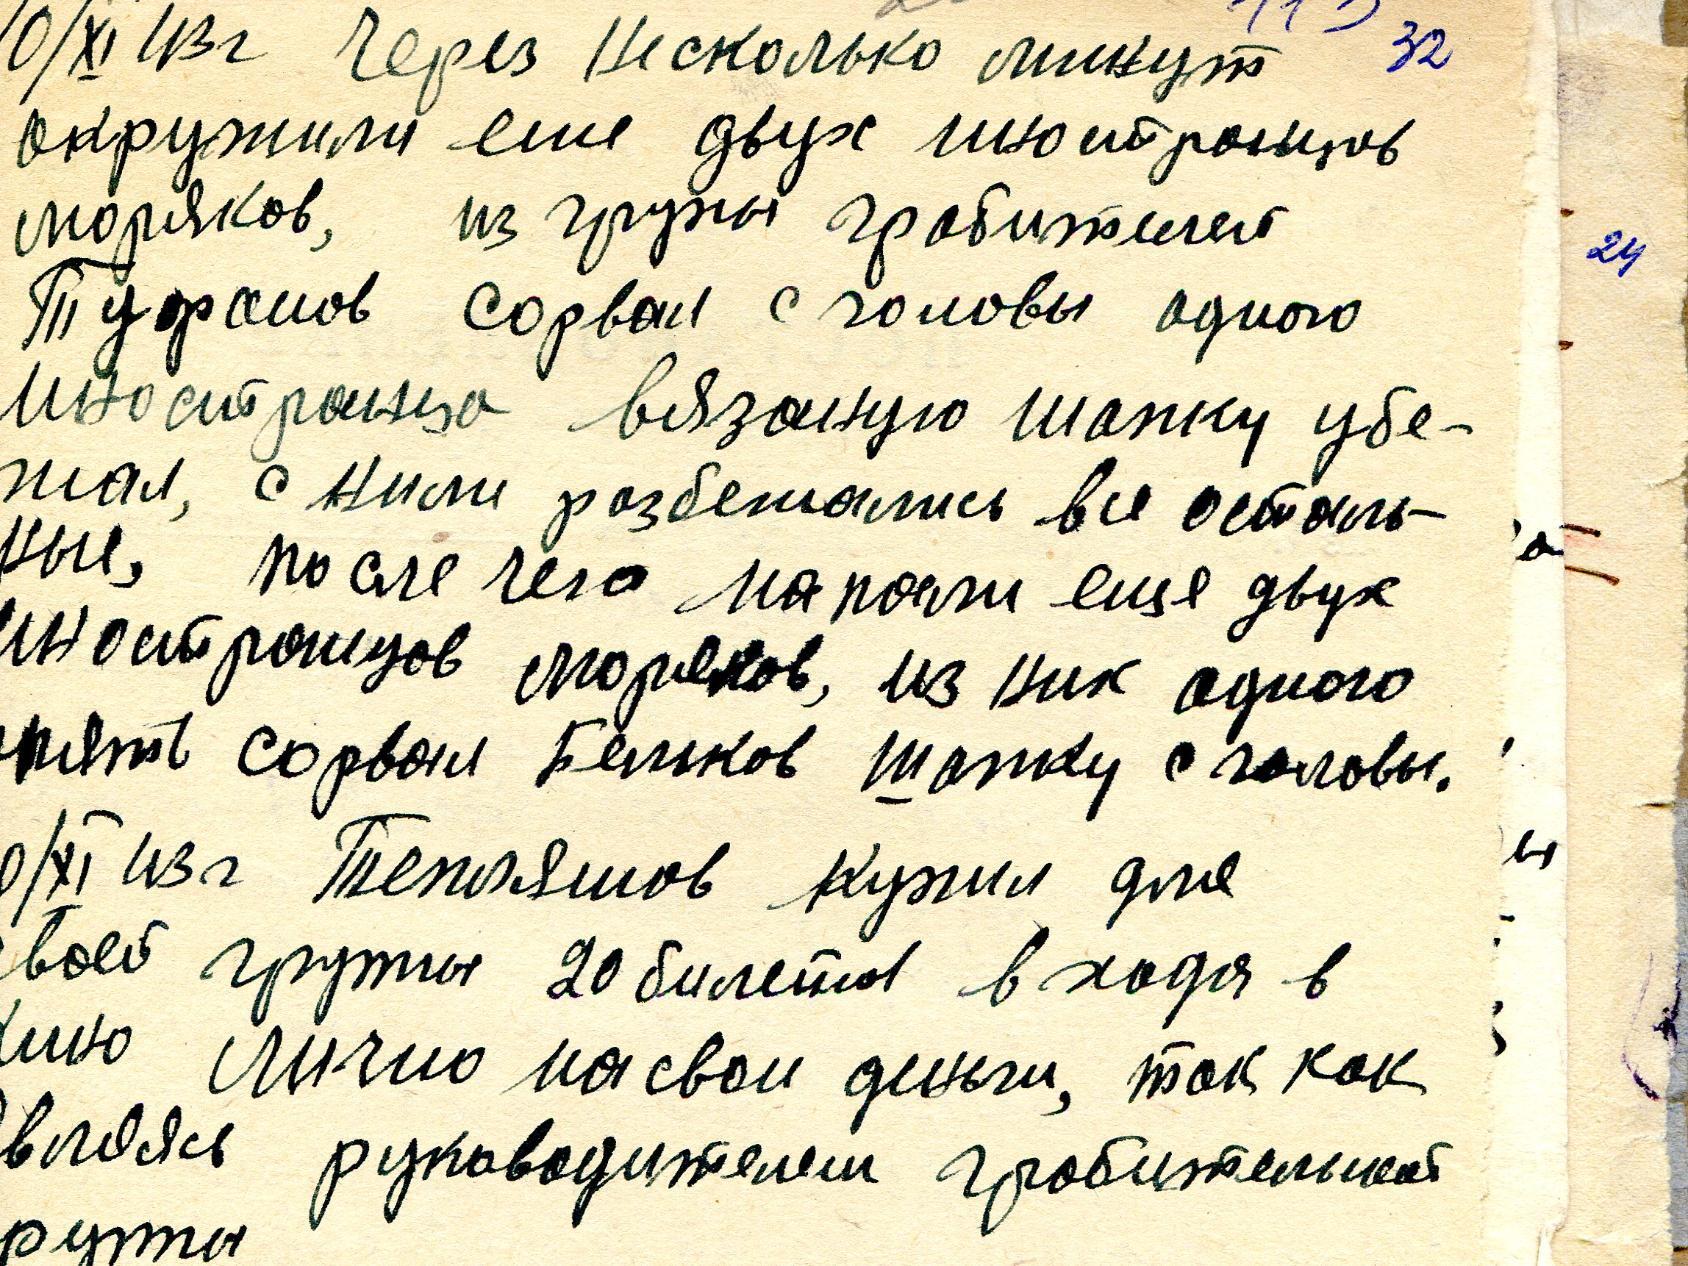 32
0/XI 43г Через несколько минут
окружили еше двух иностранцов
моряков, из групы грабителей
Туфанов сорвал с головы одного
иностранца вязаную шапку убе-
жал, с ними разбежались все осталь-
ные, после чего напали еще двух
иностранцов моряков, из них одного
опять сорвал Бельков шапку с головы.
0/XI 43г Тепляшов купил для
своей групы 20 билетов входя в
кино лично на свои деньги, так как
являясь руководителем грабительной
групы
24